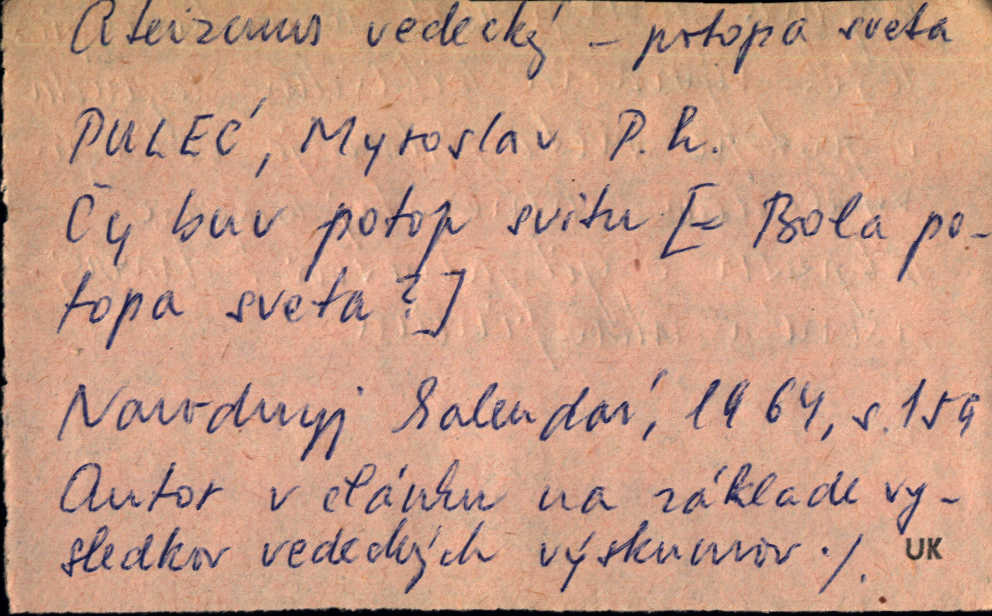 Ateizmus vedecký – potopa sveta
PULEĆ, Myroslav P.h.
Čy buv potop svitu [= Bola po-
topa sveta?]
Narodnyj kalendar, 1964, s. 159
Autor v článku na základe vy-
sledkov vedeckých výskumov ./.
UK